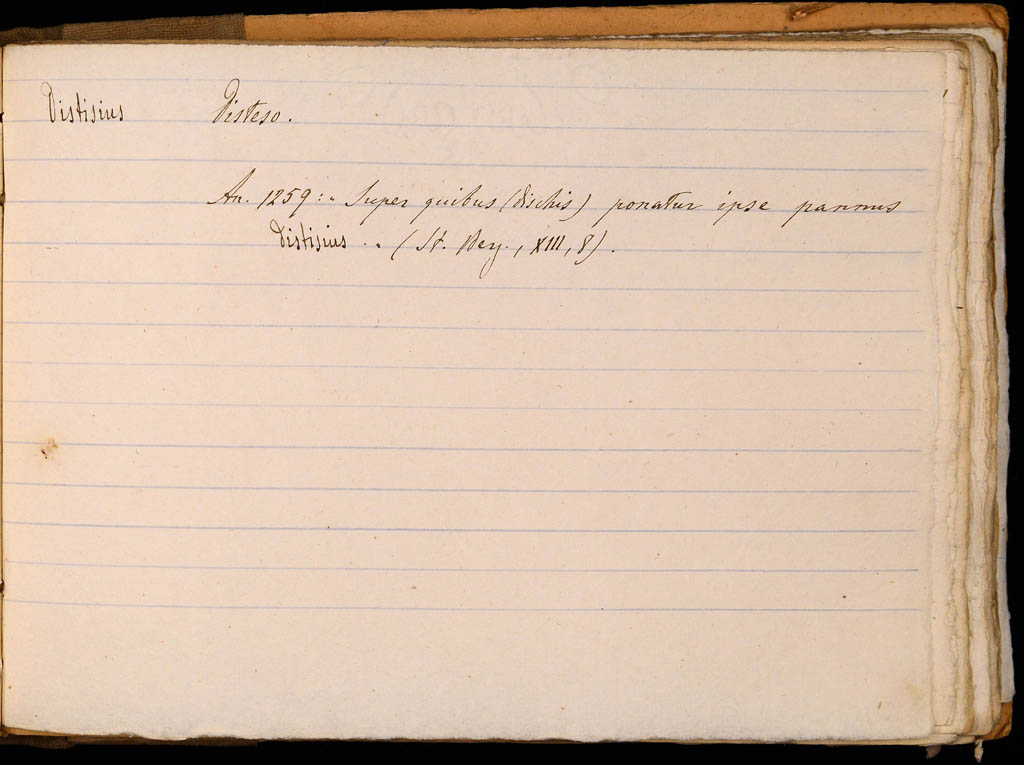 Distisius Disteso.
An. 1259: " Super quibus (dischis) ponatur ipse pannus
distisius . " (St. Berg., XIII, 8).